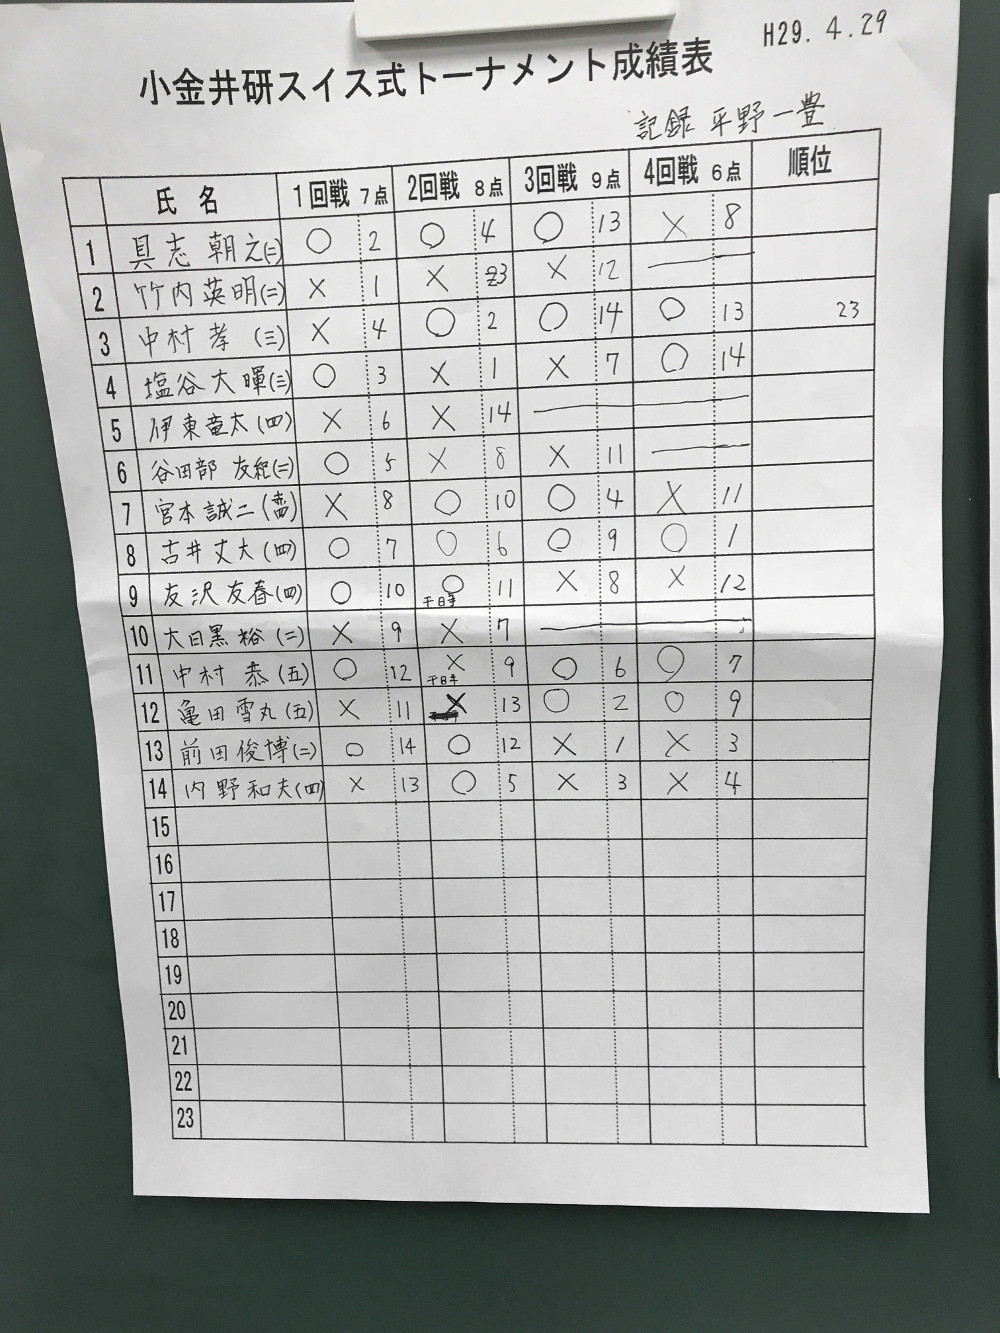 H29.4.29
小金井研スイス式トーナメント成績表
記録 平野一豊
氏名 1回戦 7点 2回戦 8点 3回戦 9点 4回戦 6点 順位
1 具志朝之(二) ○ 2 ○ 4 ○ 13 × 8
2 竹内英明(二) × 1 × 3 × 12
3 中村孝(三) × 4 ○ 2 ○ 14 ○ 13 23
4 塩谷大暉(三) ○ 3 × 1 × 7 ○ 14
5 伊東竜太(四) × 6 × 14
6 谷田部友紀(二) ○ 5 × 8 × 11
7 宮本誠二 × 8 ○ 10 ○ 4 × 11
8 古井丈大(四) ○ 7 ○ 6 ○ 9 ○ 1
9 友沢友春(四) ○ 10 ○ 千日手 11 × 8 × 12
10 大目黒裕(二) × 9 × 7
11 中村恭(五) ○ 12 × 千日手 9 ○ 6 ○ 7
12 亀田雪丸(五) × 11 × 13 ○ 2 ○ 9
13 前田俊博(二) ○ 14 ○ 12 × 1 × 3
14 内野和夫(四) × 13 ○ 5 × 3 × 4
15
16
17
18
19
20
21
22
23